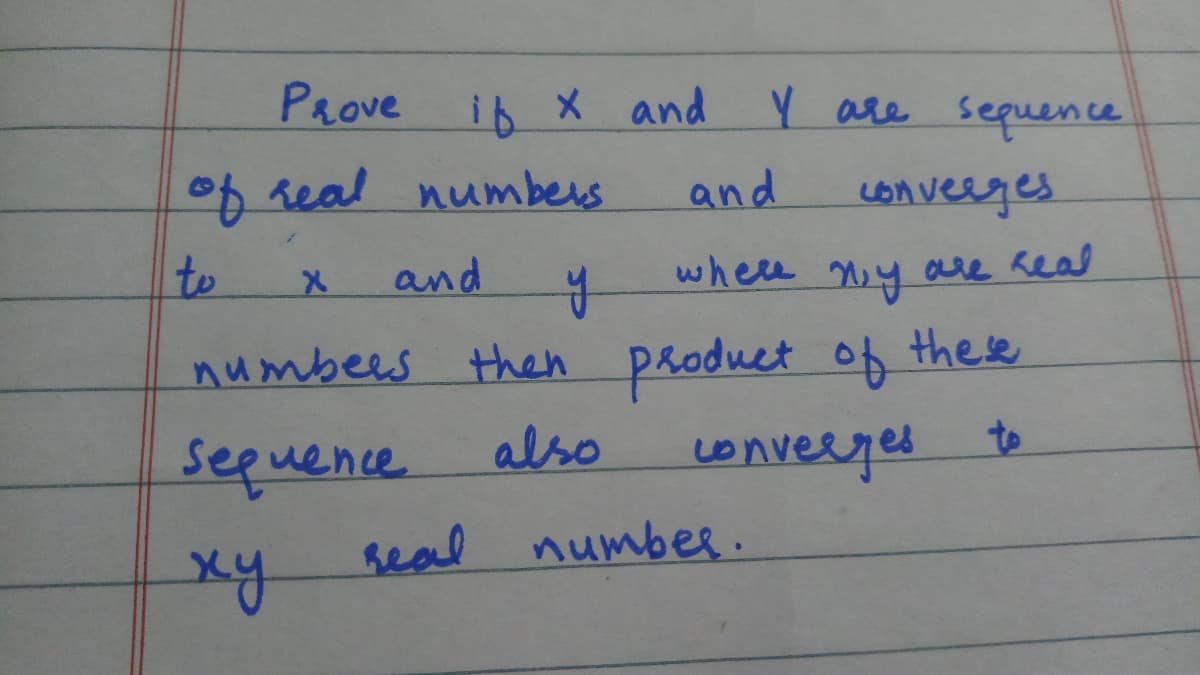 Prove if X and Y are sequence
of real numbers and converges
to x and y where x,y are real
numbers then product of these
sequence also converges to
xy real number.